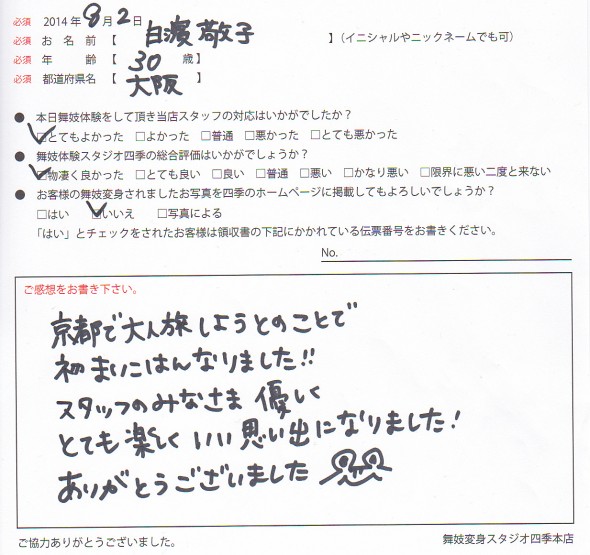 必須 2014年 8月 2日
必須 お名前【 白濱 敬子 】(イニシャルやニックネームでも可)
必須 年齢【 30 歳】
必須 都道府県名【 大阪 】
● 本日舞妓体験をして頂き当店スタッフの対応はいかがでしたか?
☑とてもよかった □よかった □普通 □悪かった □とても悪かった
● 舞妓体験スタジオ四季の総合評価はいかがでしょうか?
☑物凄く良かった □とても良い □良い □普通 □悪い □かなり悪い □限界に悪い二度と来ない
● お客様の舞妓変身されましたお写真を四季のホームページに掲載してもよろしいでしょうか?
□はい ☑いいえ □写真による
「はい」とチェックをされたお客様は領収書の下記にかかれている伝票番号をお書きください。
No.
ご感想をお書き下さい。
京都で大人旅しようとのことで
初まいこはんなりました!!
スタッフのみなさま 優しく
とても楽しく いい思い出になりました!
ありがとうございました
ご協力ありがとうございました。
舞妓変身スタジオ四季本店